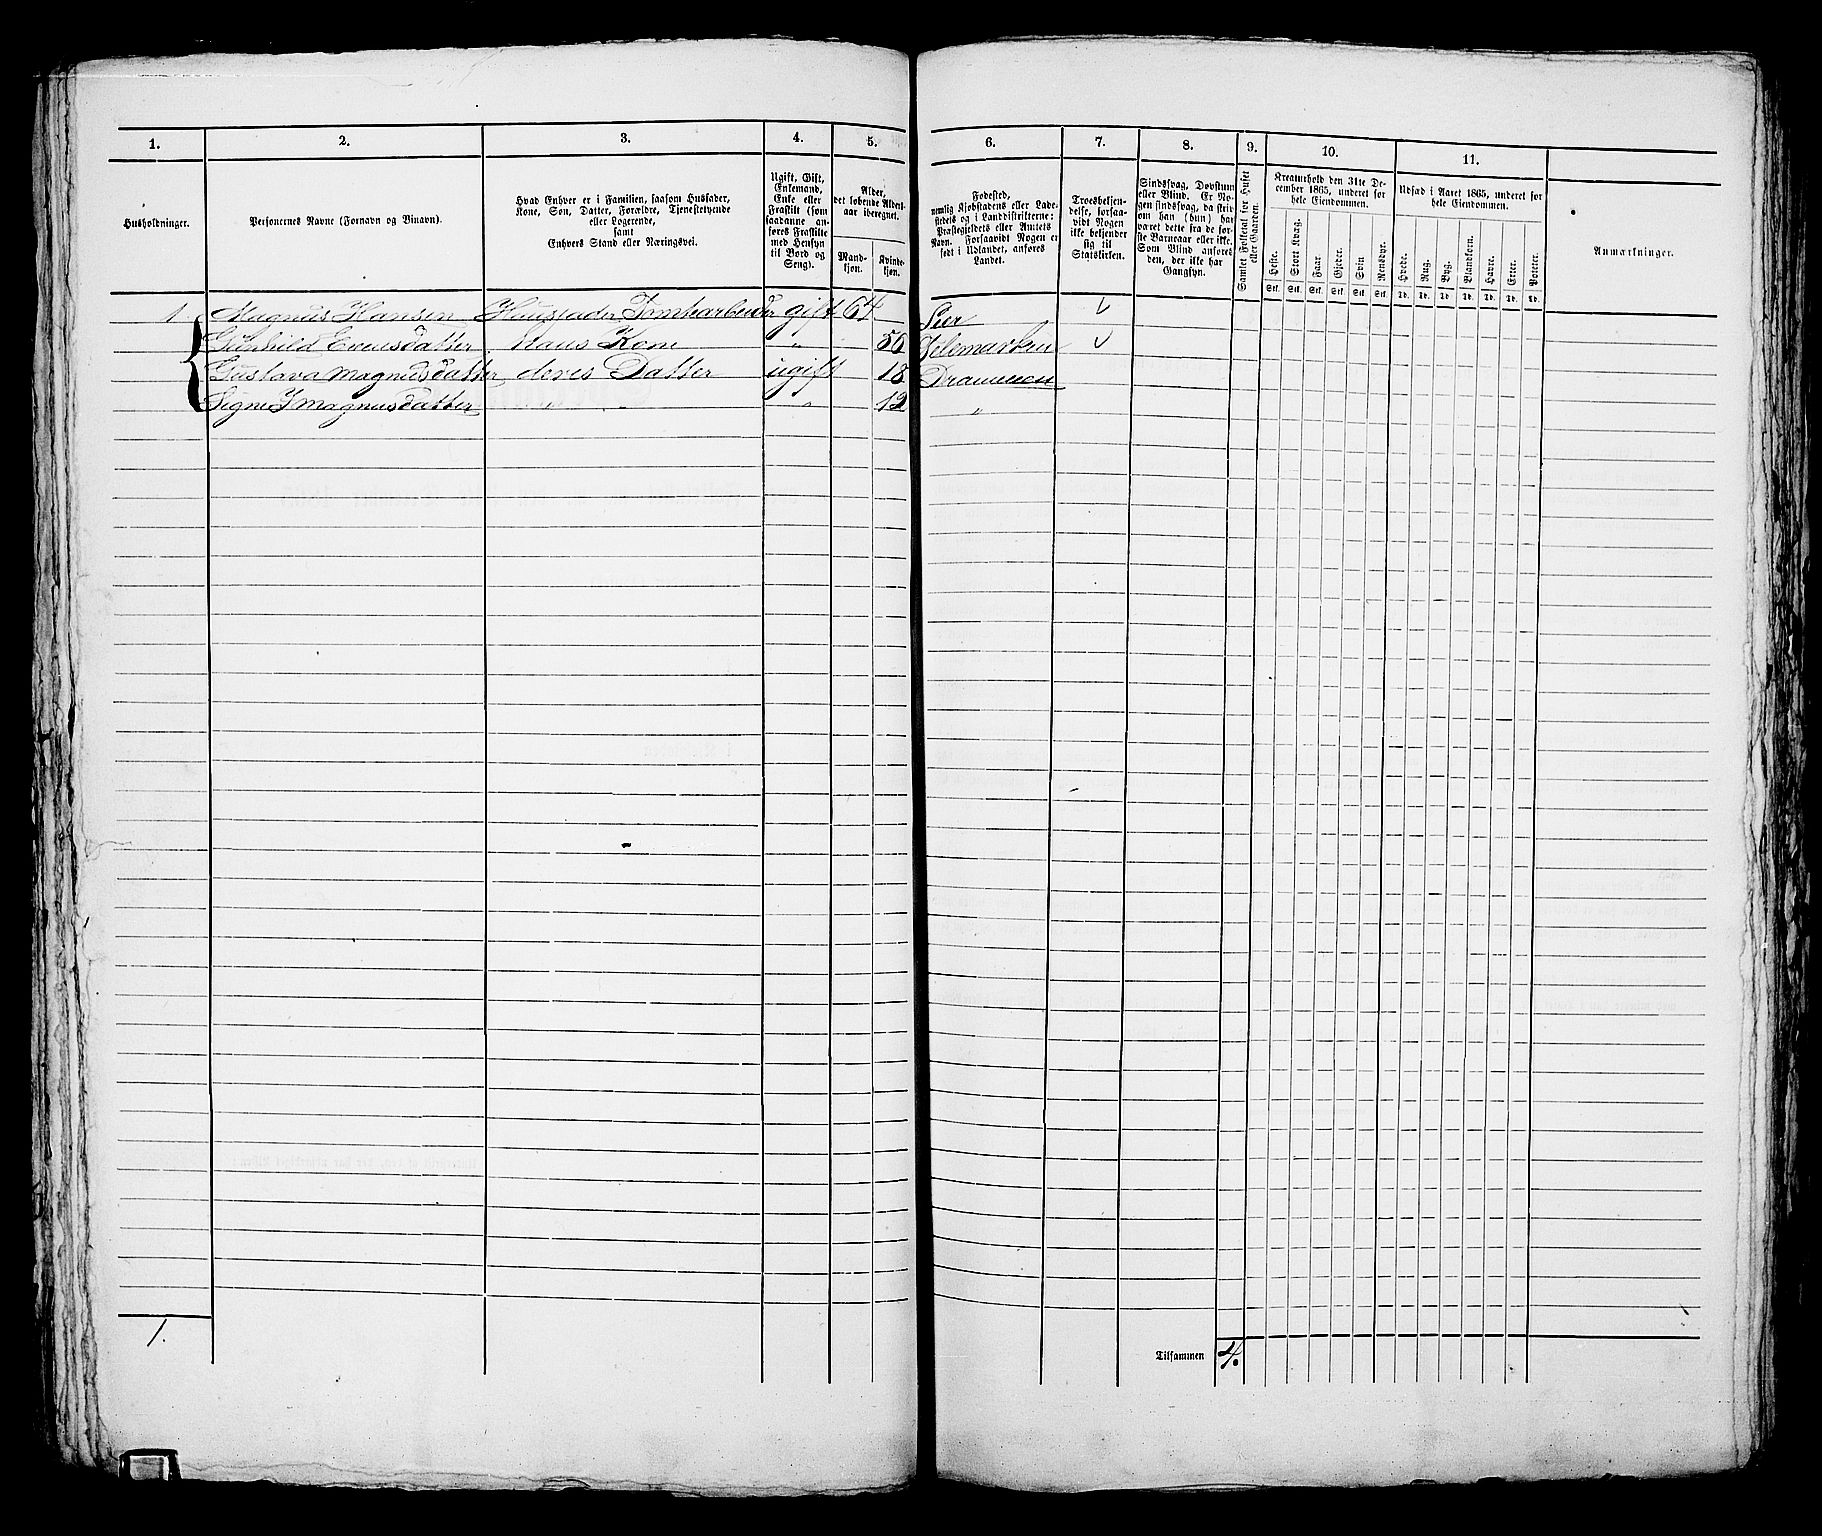 1.
2.
3.
4.
5.
6.
7.
8.
9.
10.
11.
Husholdninger.
Personernes Navne (Fornavn og Binavn).
Hvad Enhver er i Familien, saasom Husfader,
Kone, Søn, Datter, Forældre, Tjenestetyende
eller Logerende,
samt
Enhvers Stand eller Næringsvei.
Ugift, Gift,
Enkemand,
Enke eller
Fraskilt (som
saadanne an-
føres Fraskilte
med Hensyn
til Bord og
Seng).
Alder,
det løbende Alders-
aar iberegnet.
Mand-
kjøn.
Kvinde-
kjøn.
Fødested,
nemlig Kjøbstadens eller Lade-
stedets og i Landdistrikterne:
Præstegjeldets eller Amtets
Navn. Forsaavidt Nogen er
født i Udlandet, anføres
Landet.
Troesbekjen-
delse, forsaa-
vidt Nogen
ikke bekjender
sig til
Statskirken.
Sindssvag, Døvstum
eller Blind. Er No-
gen sindssvag, da skriv
om han (hun) har
været dette fra de før-
ste Barneaar eller ikke.
Som Blind anføres
den, der ikke har
Gangsyn.
Samlet Folketal for Huset
eller Gaarden.
Kreaturhold den 31te De-
cember 1865, underet for
hele Eiendommen.
Heste.
Stort Kvæg.
Faar.
Gjeder.
Svin
Rensdyr.
Stk. Stk. Stk. Stk. Stk. Stk.
Udsæd i Aaret 1865, underet for
hele Eiendommen.
Hvede.
Rug.
Byg.
Blandkorn.
Havre.
Erter.
Poteter.
Td. Td. Td. Td. Td. Td. Td.
Anmærkninger.
1 Magnus Hansen Huusfader Tomtearbeider gift 64 Lier
Gunhild Evensdatter Hans Kone " 56 Telemarken
Gustava Magnusdatter deres Datter ugift 18 Drammen
Signe J Magnusdatter " " " 12 "
1.
Tilsammen 4.